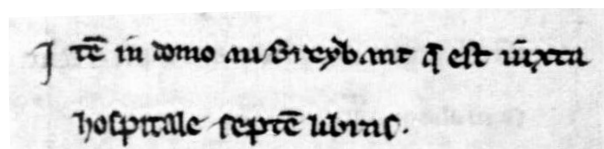 Itē in domo au Breybant q̄ est iuxta
hospitale septē libras.